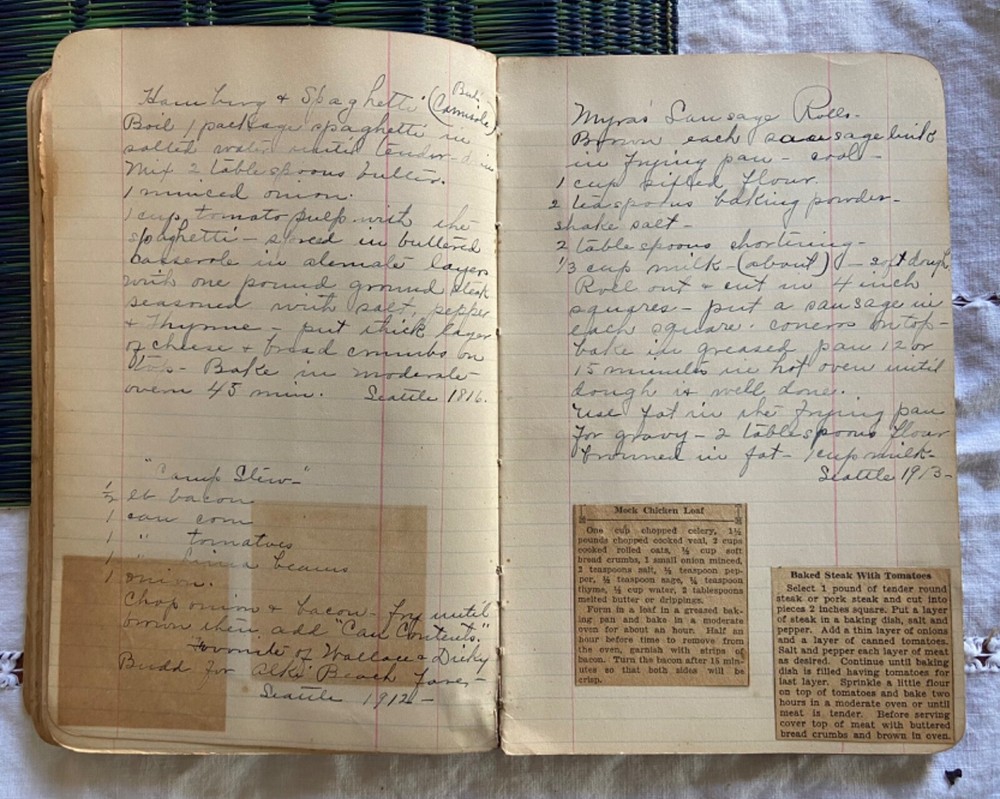 Hamburg & Spaghetti (Bud's
Camisole)
Boil 1 package spaghetti in
salted water until tender - drain
Mix 2 tablespoons butter.
1 minced onion.
1 cup tomato pulp with the
spaghetti - spread in buttered
casserole in alternate layers
with one pound ground steak
seasoned with salt, pepper
& Thyme - put thick layer
of cheese & bread crumbs on
top - Bake in moderate
oven 45 min. Seattle 1916.
"Camp Stew"
1/2 lb bacon
1 can corn
1 " tomatoes
1 " lima beans
1 onion.
Chop onion & bacon - fry until
brown then add "Can Contents."
Favorite of Wallace & Dicky
Budd for Alki Beach
Seattle 1912 -
Myra's Sausage Rolls -
Brown each sausage link
in frying pan - cool -
1 cup sifted flour.
2 teaspoons baking powder -
shake salt -
2 tablespoons shortening -
1/3 cup milk - (about) - soft dough
Roll out & cut in 4 inch
squares - put a sausage in
each square. corners on top -
bake in greased pan 12 or
15 minutes in hot oven until
dough is well done.
Use fat in the frying pan
for gravy - 2 tablespoons flour
browned in fat - 1 cup milk -
Seattle 1913 -
Mock Chicken Loaf
One cup chopped celery, 1½
pounds chopped cooked veal, 2 cups
cooked rolled oats, ½ cup soft
bread crumbs, 1 small onion minced,
2 teaspoons salt, ½ teaspoon pep-
per, ½ teaspoon sage, ¼ teaspoon
thyme, ½ cup water, 2 tablespoons
melted butter or drippings.
Form in a loaf in a greased bak-
ing pan and bake in a moderate
oven for about an hour. Half an
hour before time to remove from
the oven, garnish with strips of
bacon. Turn the bacon after 15 min-
utes so that both sides will be
crisp.
Baked Steak With Tomatoes
Select 1 pound of tender round
steak or pork steak and cut into
pieces 2 inches square. Put a layer
of steak in a baking dish, salt and
pepper. Add a thin layer of onions
and a layer of canned tomatoes.
Salt and pepper each layer of meat
as desired. Continue until baking
dish is filled having tomatoes for
last layer. Sprinkle a little flour
on top of tomatoes and bake two
hours in a moderate oven or until
meat is tender. Before serving
cover top of meat with buttered
bread crumbs and brown in oven.